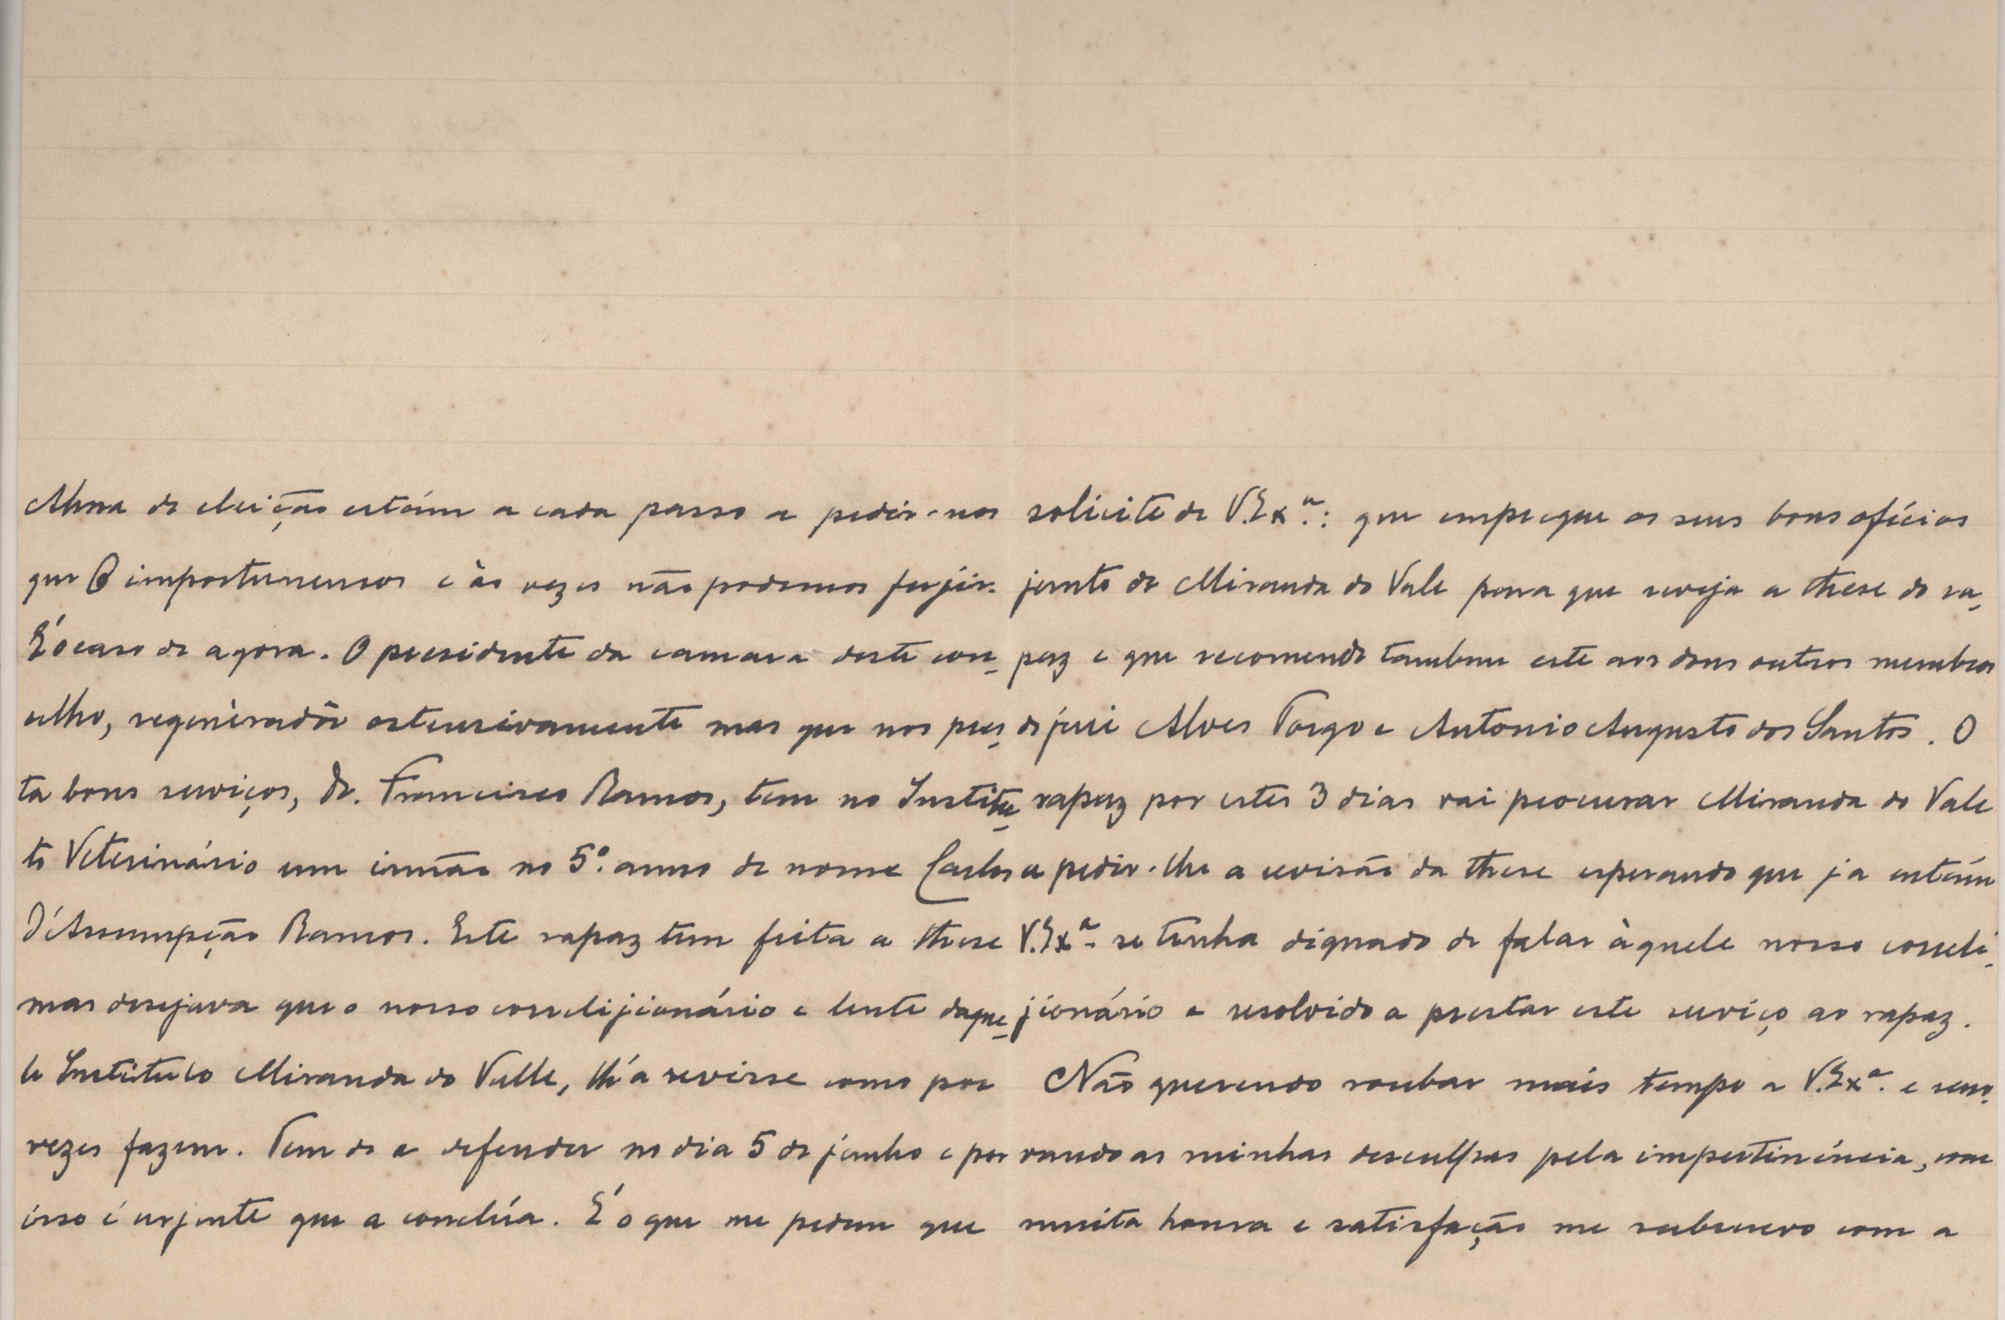 Alma de eleição estám a cada passo a pedir-nos
que O importunemos e às vezes não podemos fujir.
É o caso de agora. O presidente da camara deste con-
celho, regeneradôr ostensivamente mas que nos pres-
ta bons serviços, Dr. Francisco Ramos, tem no Institu-
to Veterinário um irmão no 5º. anno de nome Carlos
d'Assumpção Ramos. Este rapaz tem feita a these
mas desejava que o nosso correlijionário e lente daque-
le Instituto Miranda do Valle, lh'a revisse como por
vezes fazem. Tem de a defender no dia 5 de junho e por
isso é urjente que a conclúa. É o que me pedem que
solicite de V.Exª.: que empregue os seus bons ofícios
junto de Miranda do Vale para que reveja a these do ra-
paz e que recomende tambem este aos dous outros membros
do juri Alves Torgo e Antonio Augusto dos Santos. O
rapaz por estes 3 dias vai procurar Miranda do Vale
a pedir-lhe a revisão da these esperando que já estám
V.Exª. se tenha dignado de falar àquele nosso correli-
jionário e resolvido a prestar este serviço ao rapaz.
Não querendo roubar mais tempo a V.Exª. e reno-
vando as minhas desculpas pela impertinéncia, com
muita honra e satisfação me subscrevo com a